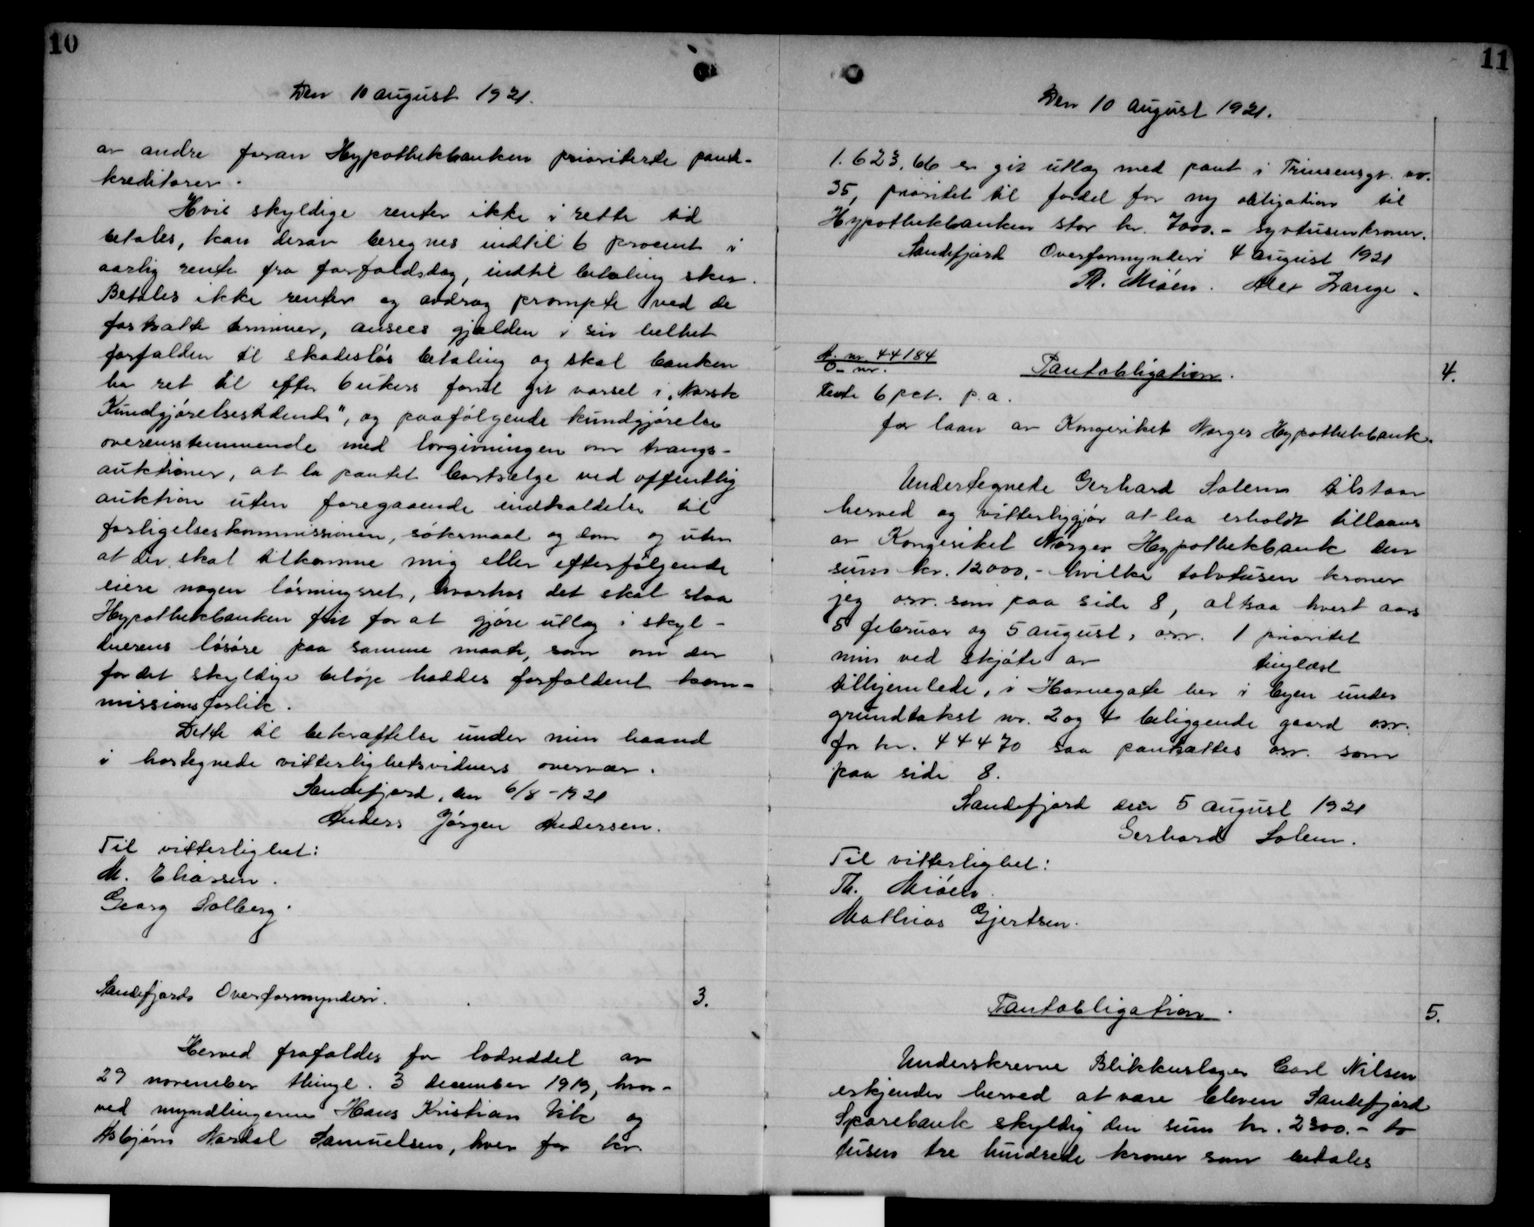 10
Den 10 august 1921.
av andre foran Hypothekbanken prioriterte pant-
kreditorer.
Hvis skyldige renter ikke i rette tid
betales, kan derav beregnes indtil 6 procent i
aarlig rente fra forfaldsdag, indtil betaling sker.
Betales ikke renter og avdrag prompte ved de
fastsatte terminer, ansees gjælden i sin helhet
forfalden til skadesløs betaling og skal banken
ha ret til efter 6 ukers forut git varsel i "Norsk
Kundgjørelsestidende", og paafølgende kundgjørelse
overensstemmende med lovgivningen om tvangs-
auktioner, at la pantet bortsælge ved offentlig
auktion uten foregaaende indkaldelse til
forligelseskommissionen, søksmaal og dom og uten
at der skal tilkomme mig eller efterfølgende
eiere nogen løsningsret, hvorhos det skal staa
Hypothekbanken frit for at gjøre utlæg i skyl-
dnerens løsøre paa samme maate, som om der
for det skyldige beløp haddes forfaldent kom-
missionsforlik.
Dette til bekræftelse under min haand
i hostegnede vitterlighetsvidners overvær.
Sandefjord, den 6/8-1921
Anders Jørgen Andersen.
Til vitterlighet:
M. Eliassen.
Georg Solberg.
Sandefjords Overformynderi. 3.
Herved frafaldes for lodseddel av
29 november thingl. 3 december 1919, hvor-
ved myndlingerne Hans Kristian Vik og
Asbjørn Nardal Samuelsen, hver for kr.
11
Den 10 august 1921.
1.623,66 er git utlæg med pant i gr. nr.
35, prioritet til fordel for ny obligation til
Hypothekbanken stor kr. 7000.- syvtusenkroner.
Sandefjord Overformynderi 4 august 1921
Th. Miøen. Alex Lange.
A. nr. 44184
O- nr.
Pantobligation. 4.
Rente 6 pct. p.a.
for laan av Kongeriket Norges Hypothekbank.
Undertegnede Gerhard Solem tilstaar
herved og vitterliggjør at ha erholdt tillaans
av Kongeriket Norges Hypothekbank den
sum kr. 12000,- hvilke tolvtusen kroner
jeg osv. som paa side 8, altsaa hvert aars
5 februar og 5 august, osv. 1 prioritet
min ved skjøte av tinglæst
tilhjemlede, i Havnegate her i byen under
grundtakst nr. 2 og 4 beliggende gaard osv.
for kr. 44470 saa pantsættes osv. som
paa side 8.
Sandefjord den 5 august 1921
Gerhard Solem.
Til vitterlighet:
Th. Miøen.
Mathias Gjertsen.
Pantobligation. 5.
Underskrevne Blikkenslager Carl Nilsen
erkjender herved at være bleven Sandefjord
Sparebank skyldig den sum kr. 2300.- to
tusen tre hundrede kroner som betales